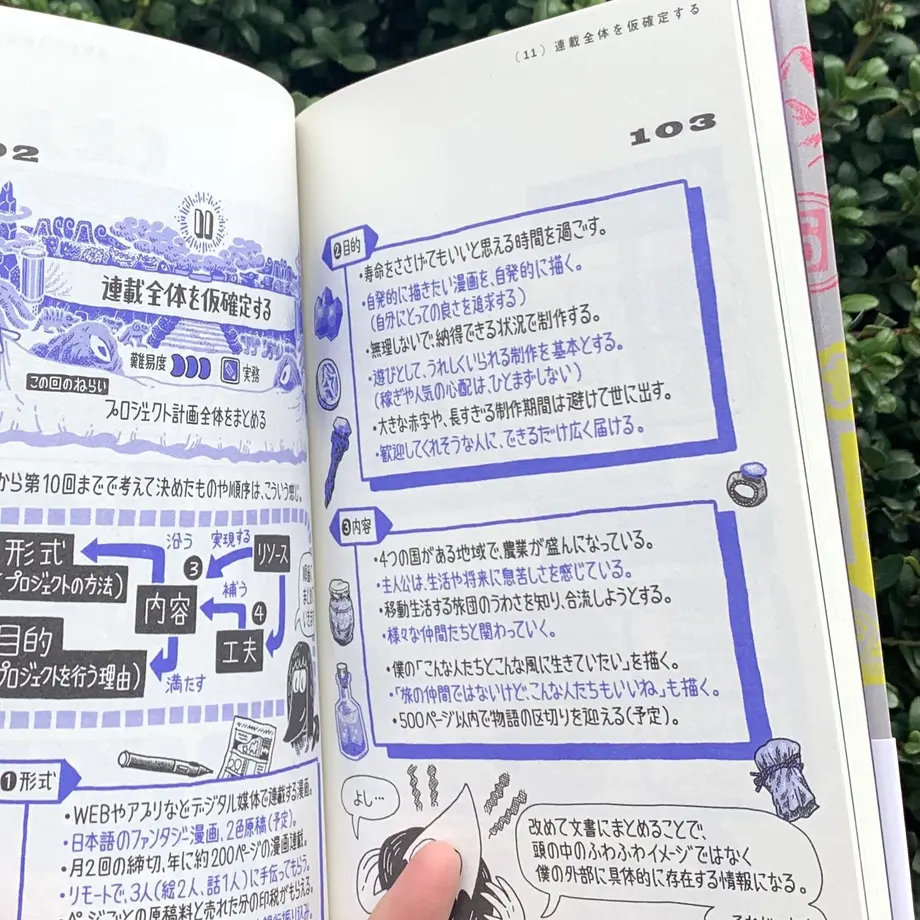 (11) 連載全体を仮確定する
02
11
連載全体を仮確定する
難易度 実務
この回のねらい
プロジェクト計画全体をまとめる
から第10回までで考えて決めたものや順序は、こういう感じ。
形式
(プロジェクトの方法)
沿う
実現する
リソース
③
内容
補う
④
工夫
目的
プロジェクトを行う理由)
満たす
①形式
・WEBやアプリなどデジタル媒体で連載する漫画。
・日本語のファンタジー漫画、2色原稿(予定)。
・月2回の締切、年に約200ページの漫画連載。
・リモートで、3人(絵2人、話1人)に手伝ってもらう。
・ページごとの原稿料と売れた分の印税がもらえる。
103
②目的
・寿命をささげてもいいと思える時間を過ごす。
・自発的に描きたい漫画を、自発的に描く。
(自分にとっての良さを追求する)
・無理しないで納得できる状況で制作する。
・遊びとして、うれしくいられる制作を基本とする。
(稼ぎや人気の心配は、ひとまずしない)
・大きな赤字や、長すぎる制作期間は避けて世に出す。
・歓迎してくれそうな人に、できるだけ広く届ける。
③内容
・4つの国がある地域で、農業が盛んになっている。
・主人公は、生活や将来に息苦しさを感じている。
・移動生活する旅団のうわさを知り、合流しようとする。
・様々な仲間たちと関わっていく。
・僕の「こんな人たちとこんな風に生きていたい」を描く。
・「旅の仲間ではないけど、こんな人たちもいいね」も描く。
・500ページ以内で物語の区切りを迎える(予定)。
よし…
改めて文書にまとめることで、
頭の中のふわふわイメージではなく
僕の外部に具体的に存在する情報になる。